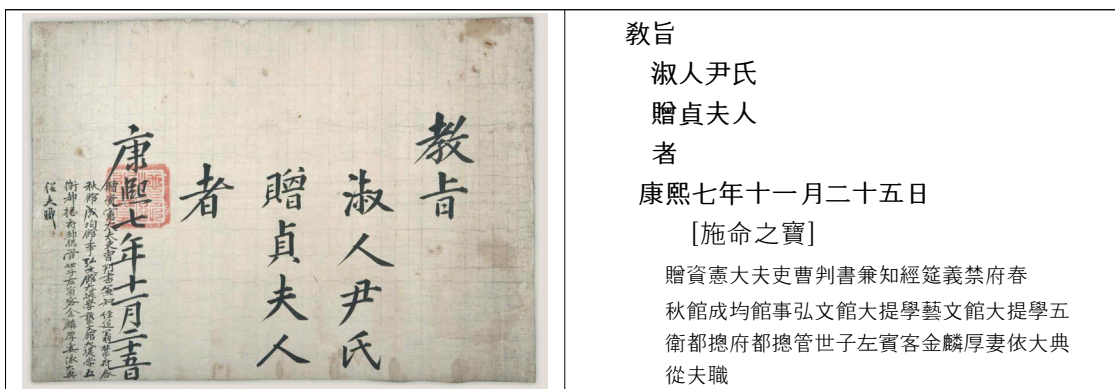 教旨
淑人尹氏
贈貞夫人
者
康熙七年十一月二十五日
贈資憲大夫吏曹判書兼知經筵義禁府春
秋館成均館事弘文館大提學藝文館大提學五
衛都摠府都摠管世子左賓客金麟厚妻依大典
從夫職
敎旨
淑人尹氏
贈貞夫人
者
康熙七年十一月二十五日
[施命之寶]
贈資憲大夫吏曹判書兼知經筵義禁府春
秋館成均館事弘文館大提學藝文館大提學五
衛都摠府都摠管世子左賓客金麟厚妻依大典
從夫職